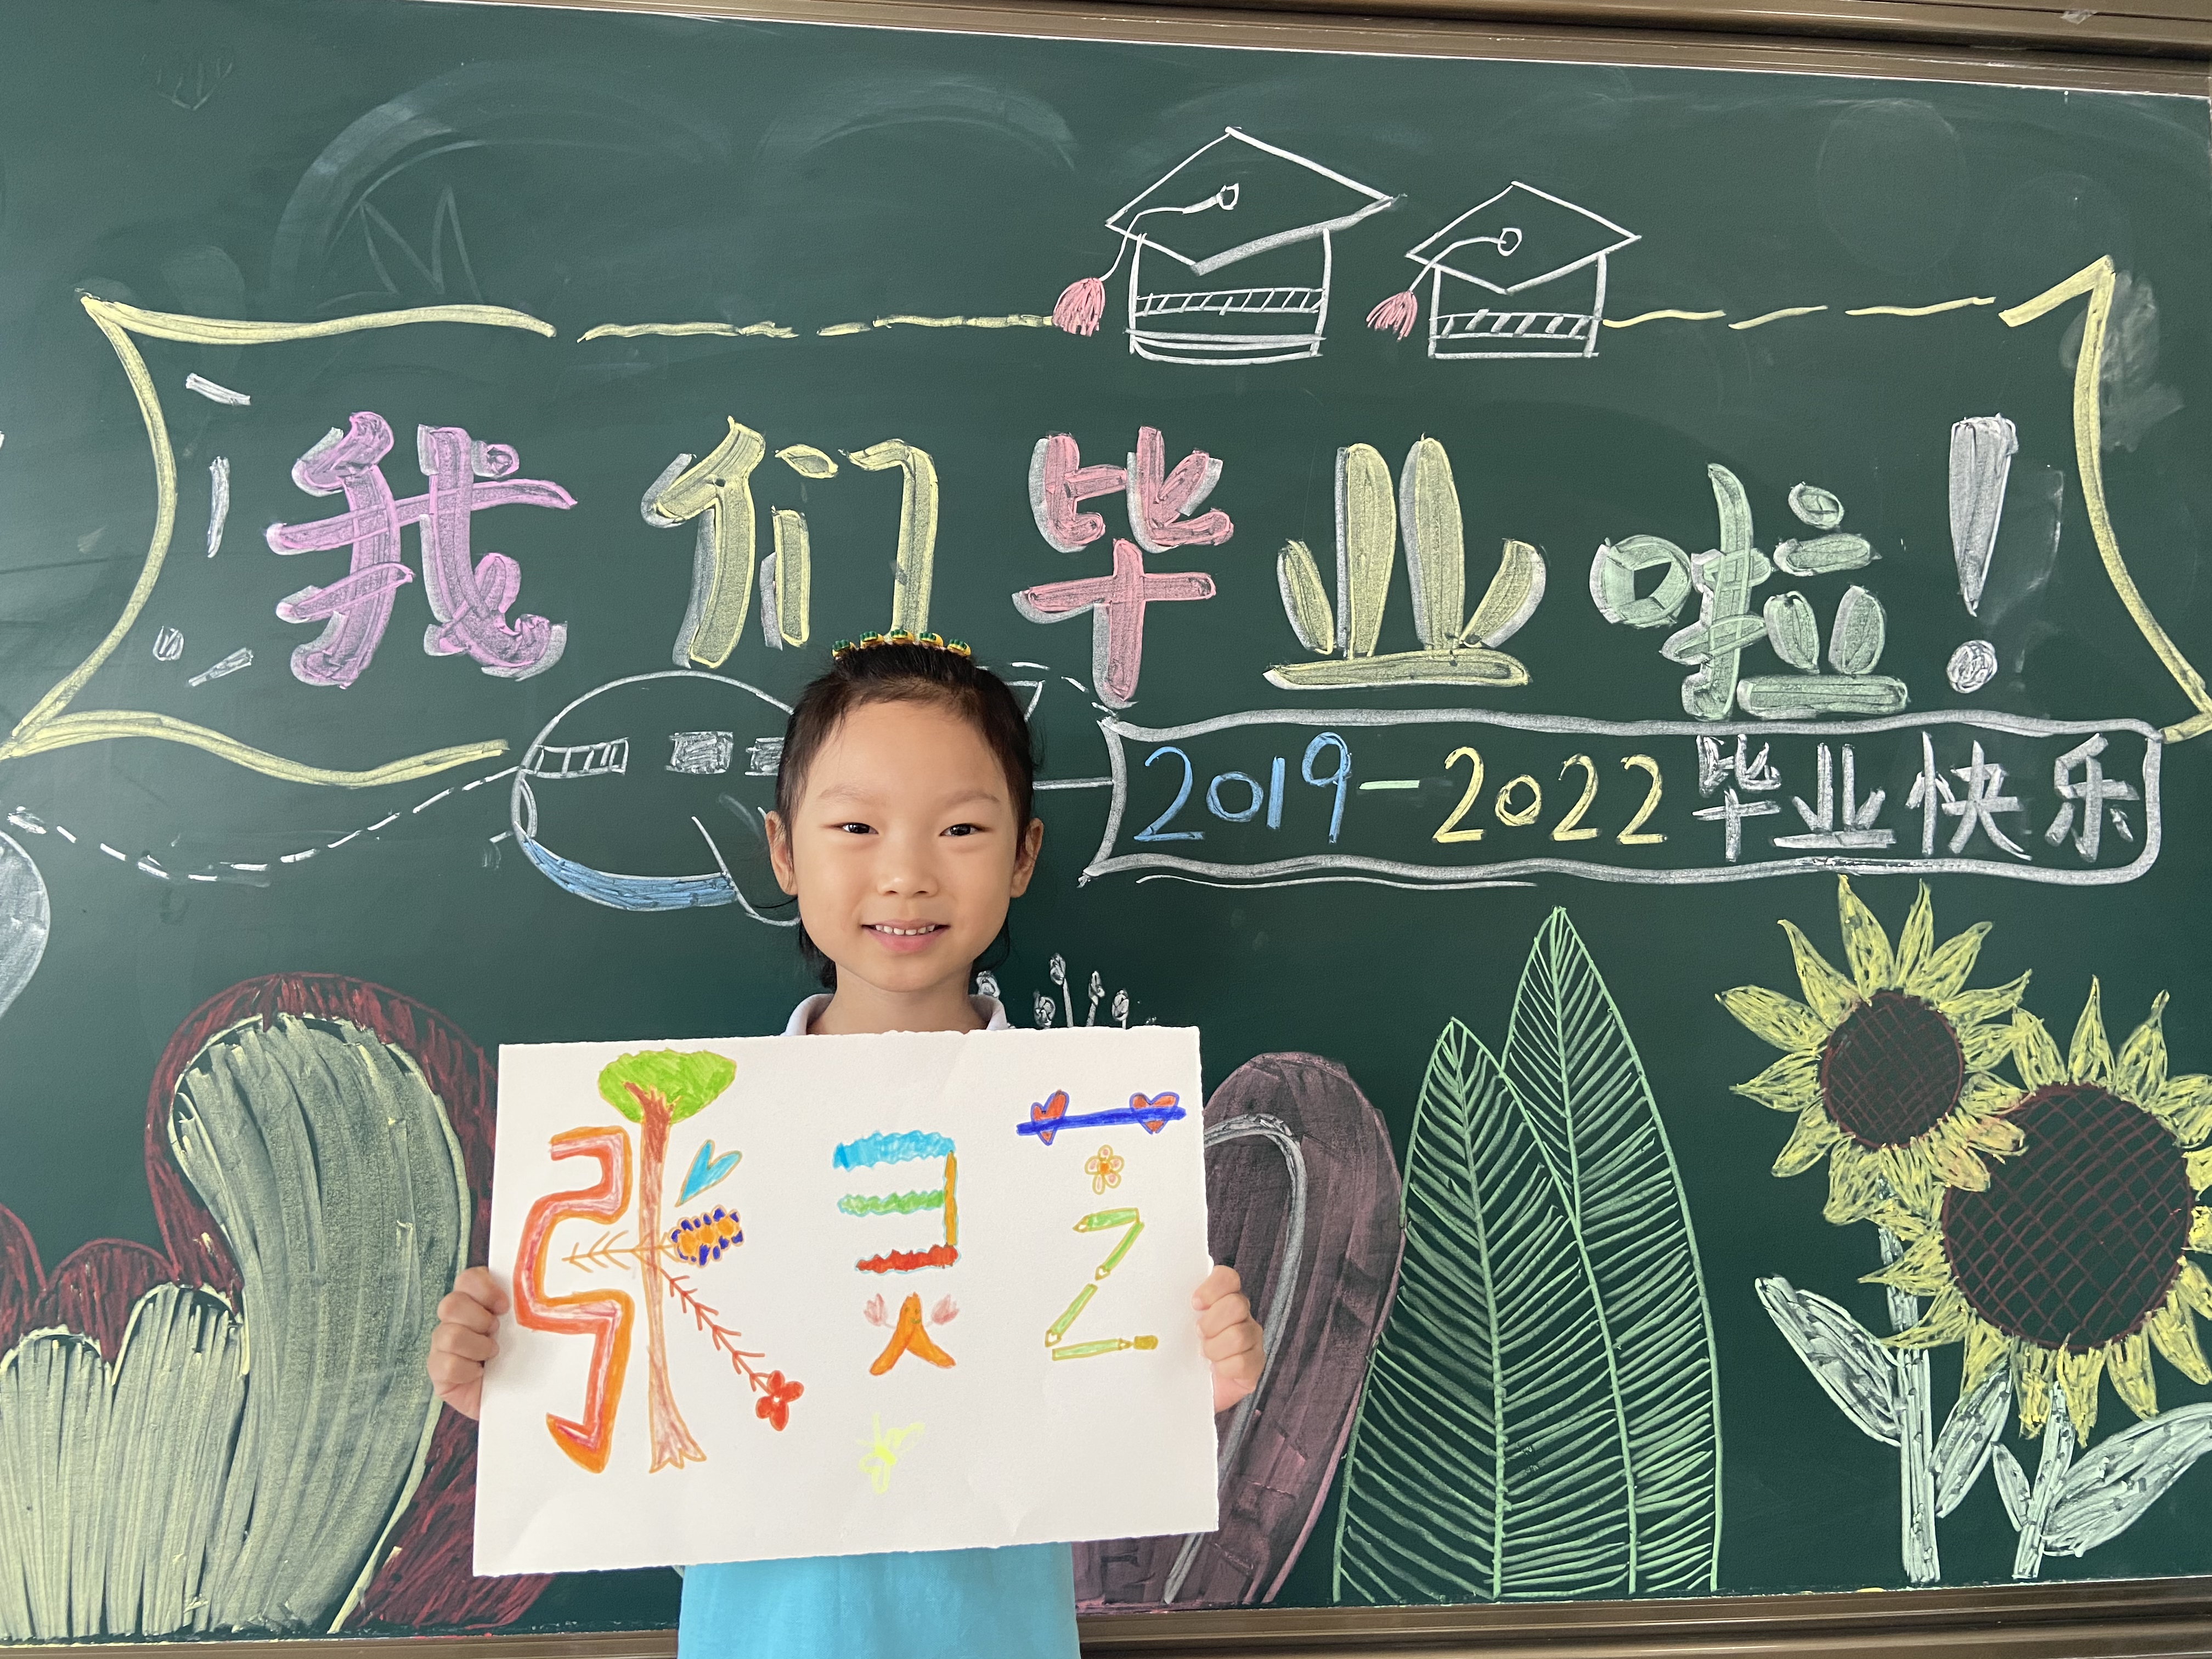 我们毕业啦！
2019-2022毕业快乐
张灵艺